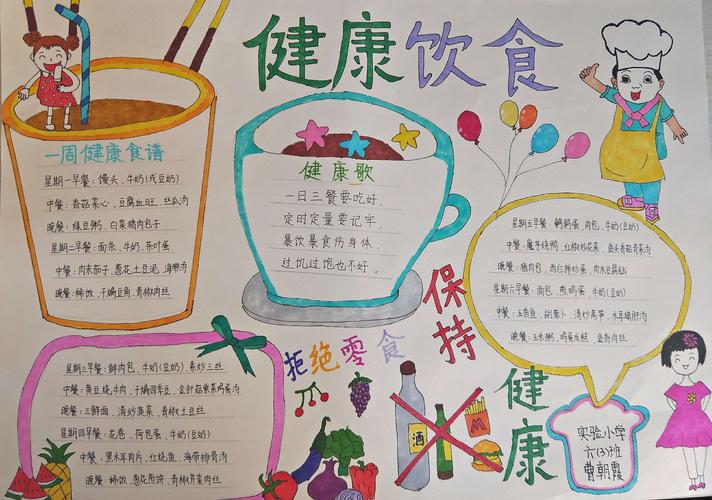 健康饮食
一周健康食谱
星期一早餐：馒头、牛奶(或豆奶)
中餐：香菇菜心、豆腐血旺、丝瓜汤
晚餐：绿豆粥、白菜猪肉包子
星期二早餐：面条、牛奶、茶叶蛋
中餐：肉末茄子、葱花土豆泥、海带汤
晚餐：稀饭、干煸豆角、青椒肉丝
健康歌
一日三餐要吃好，
定时定量要记牢，
暴饮暴食伤身体，
过饥过饱也不好。
星期五早餐：鹌鹑蛋、肉包、牛奶(豆奶)
中餐：魔芋烧鸭、红椒炒花菜、鱼头香菇青菜汤
晚餐：猪肉包、西红柿炒蛋、肉末豆腐脑
星期六早餐：面包、煎鸡蛋、牛奶(豆奶)
中餐：五香鱼、胡萝卜、清炒莴笋、木耳猪肝汤
晚餐：玉米粥、鸡蛋发糕、鱼香肉丝
星期三早餐：鲜肉包、牛奶(豆奶)、素炒三丝
中餐：黄豆烧牛肉、干煸四季豆、金针菇紫菜鸡蛋汤
晚餐：三鲜面、清炒菠菜、青椒土豆丝
星期四早餐：花卷、荷包蛋、牛奶(豆奶)
中餐：黑木耳肉片、红烧鱼、海带排骨汤
晚餐：稀饭、葱花煎饼、青椒芹菜肉丝
拒绝零食
保持
健康
酒
M
实验小学
六(3)班
曹朝霞